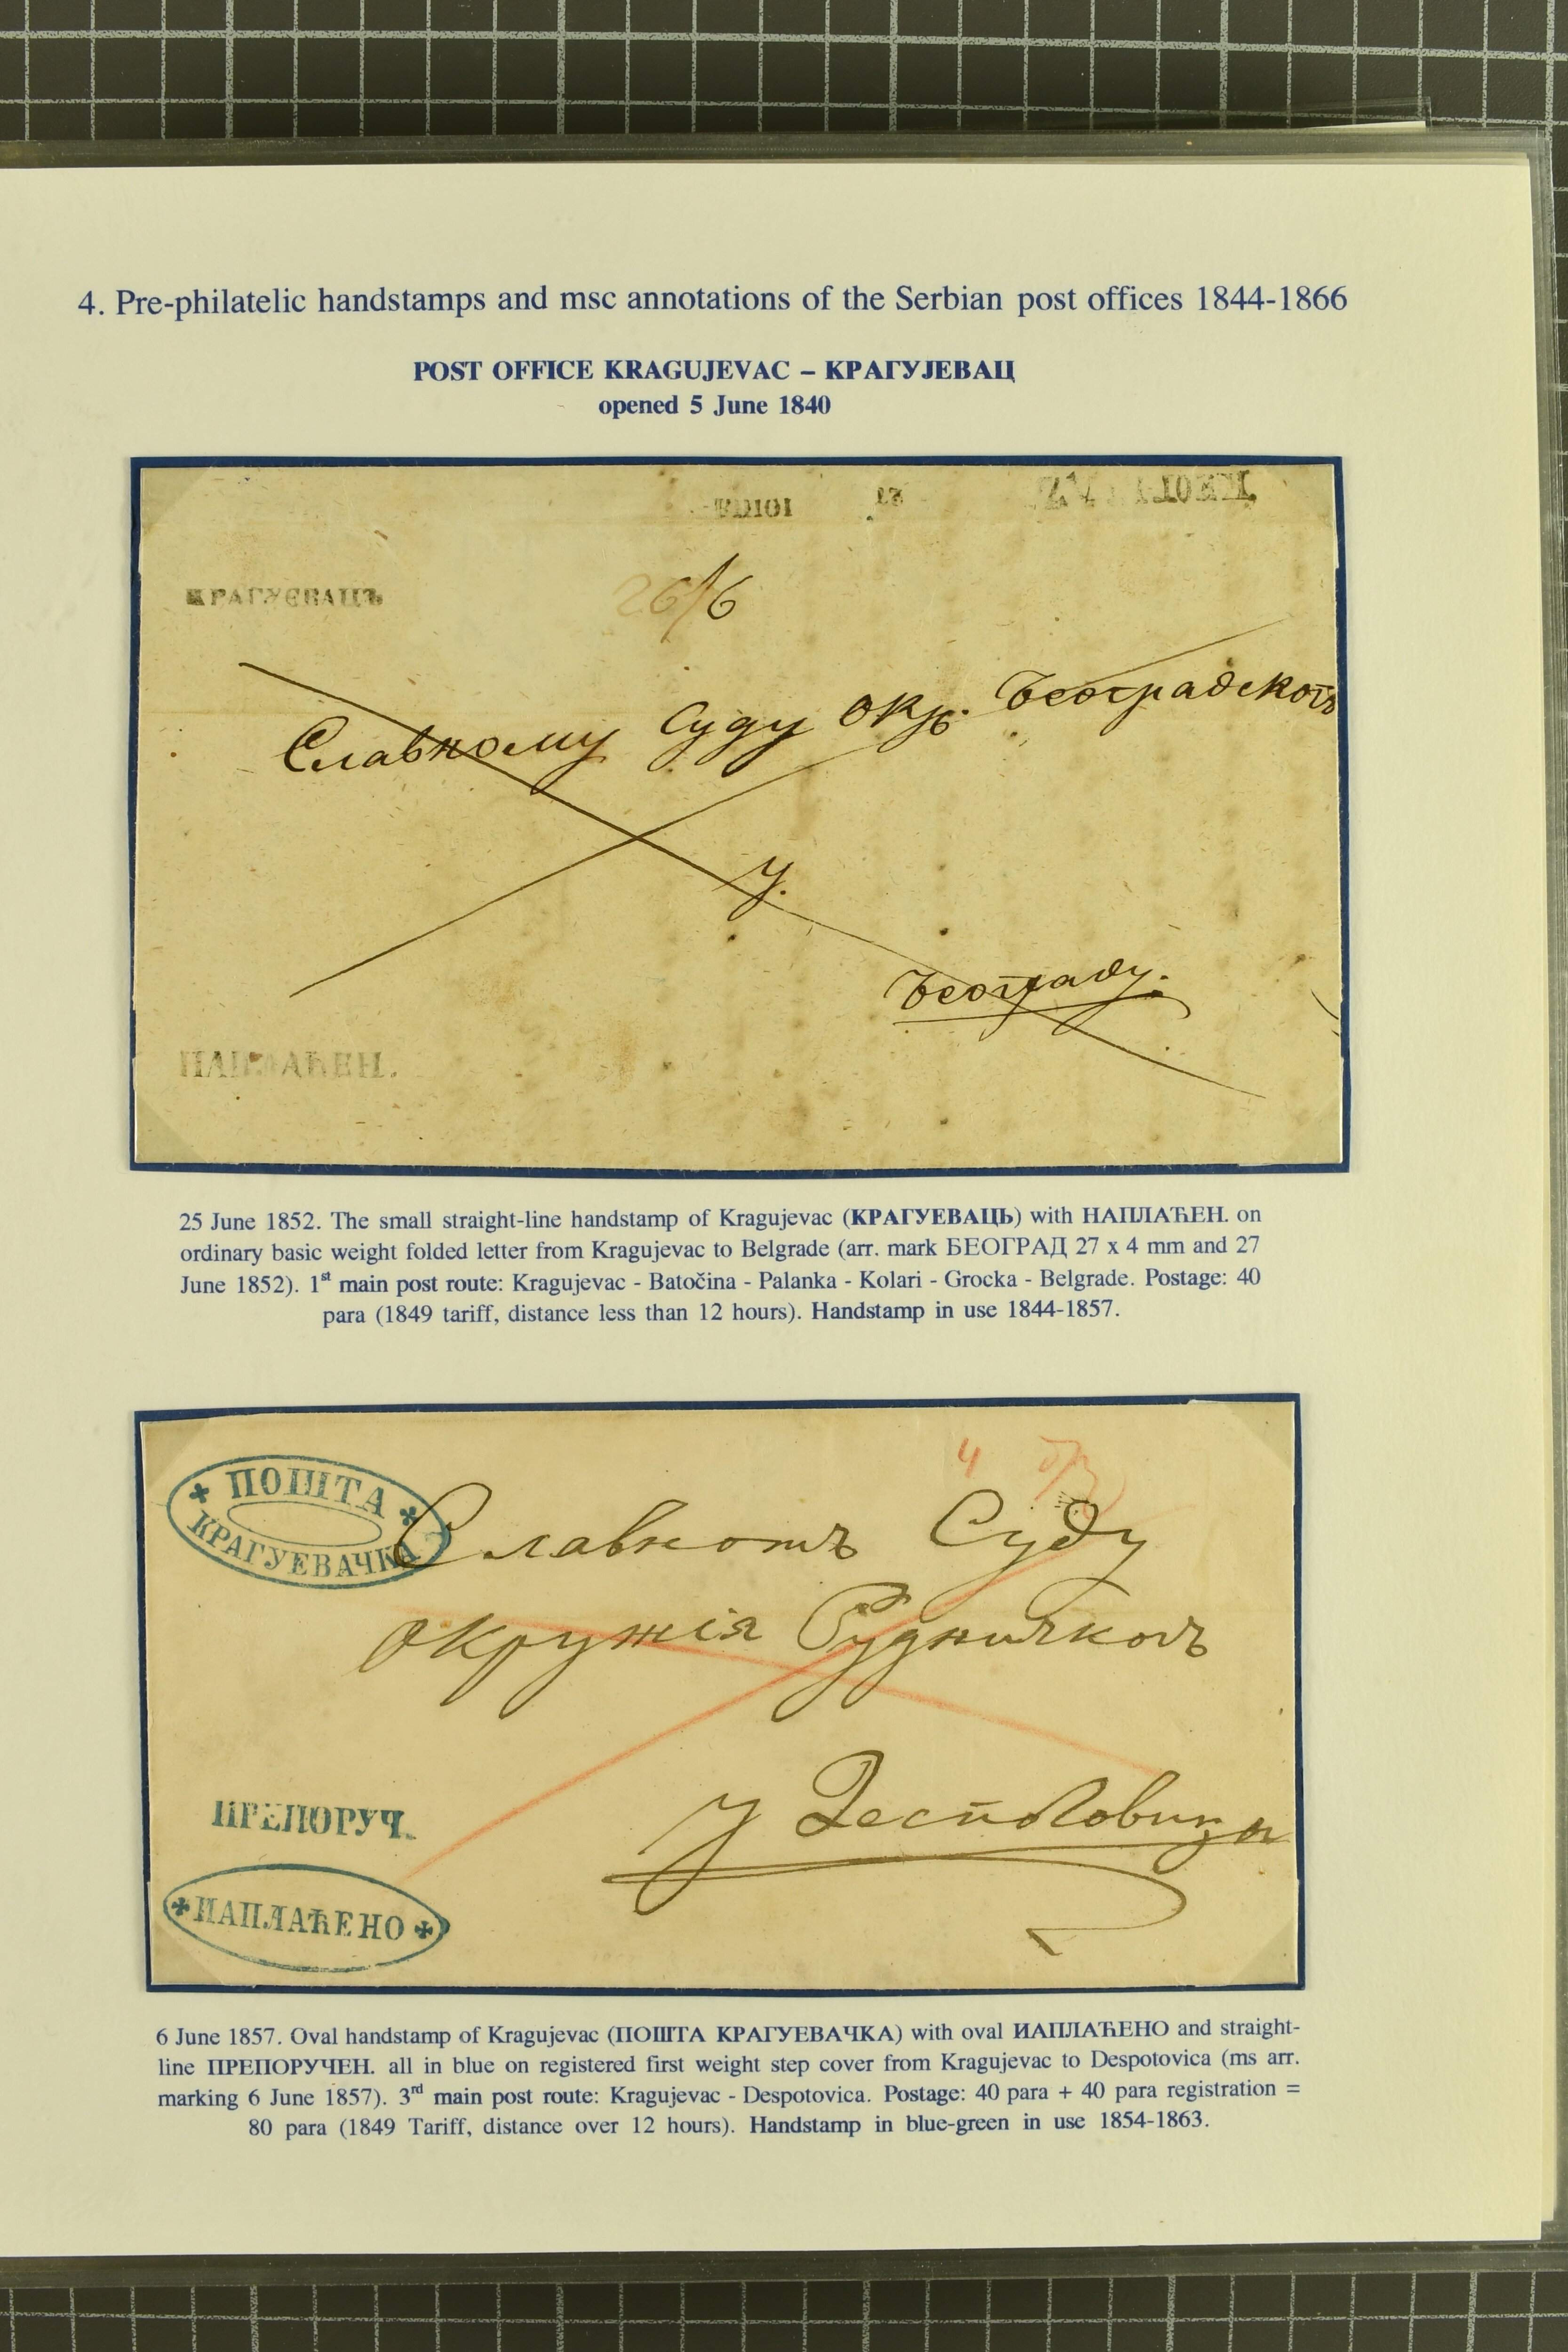 4. Pre-philatelic handstamps and msc annotations of the Serbian post offices 1844-1866
POST OFFICE KRAGUJEVAC – КРАГУЈЕВАЦ
opened 5 June 1840
КРАГУЄВАЦЪ
26/6
Славному Суду окр. Београдскогъ
У.
Београду.
НАПЛАЋЕН.
25 June 1852. The small straight-line handstamp of Kragujevac (КРАГУЕВАЦЬ) with НАПЛАЋЕН. on
ordinary basic weight folded letter from Kragujevac to Belgrade (arr. mark БЕОГРАД 27 x 4 mm and 27
June 1852). 1st main post route: Kragujevac - Batočina - Palanka - Kolari - Grocka - Belgrade. Postage: 40
para (1849 tariff, distance less than 12 hours). Handstamp in use 1844-1857.
4
ПОШТА
КРАГУЕВАЧКА
Славномъ Суду
окружія Рудничкогъ
у Деспотовици
ПРЕПОРУЧ.
НАПЛАЋЕНО
6 June 1857. Oval handstamp of Kragujevac (ПОШТА КРАГУЕВАЧКА) with oval ИАПЛАЋЕНО and straight-
line ПРЕПОРУЧЕН. all in blue on registered first weight step cover from Kragujevac to Despotovica (ms arr.
marking 6 June 1857). 3rd main post route: Kragujevac - Despotovica. Postage: 40 para + 40 para registration =
80 para (1849 Tariff, distance over 12 hours). Handstamp in blue-green in use 1854-1863.